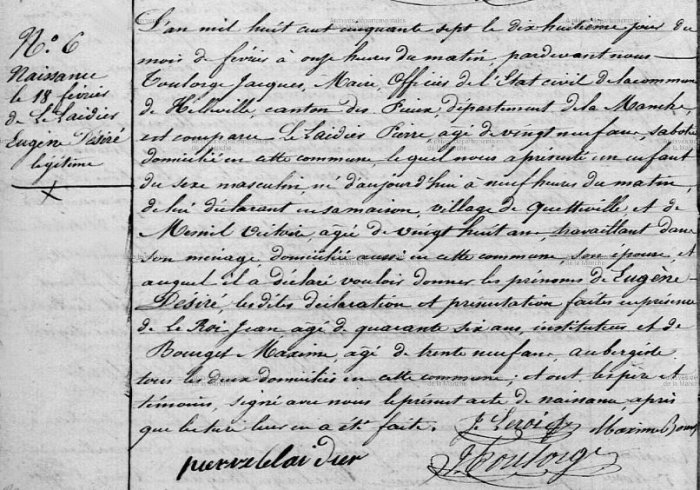 N.o 6
Naissance
le 18 février
de Le Laidier
Eugène Désiré
légitime
L'an mil huit cent cinquante sept le dix huitième jour du
mois de février à onze heures du matin, pardevant nous
Toulorge Jacques, Maire, Officier de l'Etat civil de la commune
de Helleville, canton des Pieux, département de la Manche,
est comparu Le Laidier Pierre agé de vingt neuf ans, sabotier
domicilié en cette commune, lequel nous a présenté un enfant
du sexe masculin, né d'aujourd'hui à neuf heures du matin,
de lui déclarant en sa maison, village de Quetteville et de
Mesnil Victoire agée de vingt huit ans, travaillant dans
son ménage domiciliée aussi en cette commune, son épouse, et
auquel il a déclaré vouloir donner les prénoms de Eugène
Désiré, les dites déclaration et présentation faites en présence
de Le Roi Jean agé de quarante six ans, instituteur et de
Bourget Maxime, agé de trente neuf ans, aubergiste
tous les deux domiciliés en cette commune; et ont les père et
témoins, signé avec nous le présent acte de naissance, après
que lecture leur en a été faite.
J. Leroi Maxime
pierre le laidier J Toulorge